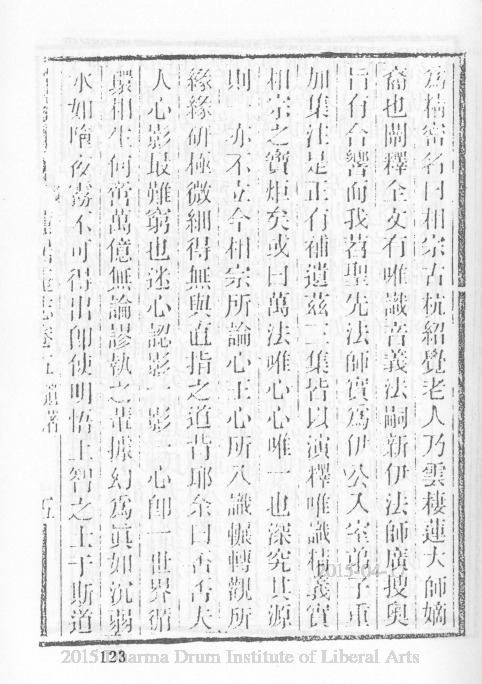 爲精密名曰相宗古杭紹覺老人乃雲棲蓮大師嫡
裔也闡釋全文有唯識音義法嗣新伊法師廣搜奧
旨有合響而我苕聖先法師實爲伊公入室弟子重
加集注是正有補遺茲二集皆以演釋唯識精義實
相宗之寶炬矣或曰萬法唯心心唯一也深究其源
則一亦不立今相宗所論心王心所八識輾轉觀所
緣緣研極微細得無與直指之道背耶余曰否否大
人心影最難窮也迷心認影一影一心卽一世界循
環相生何啻萬億無論謬執之輩據幻爲眞如沉弱
水如墮夜霧不可得出卽使明悟上智之士于斯道
卷五 遺著 五
123
2015-04
2015 Dharma Drum Institute of Liberal Arts